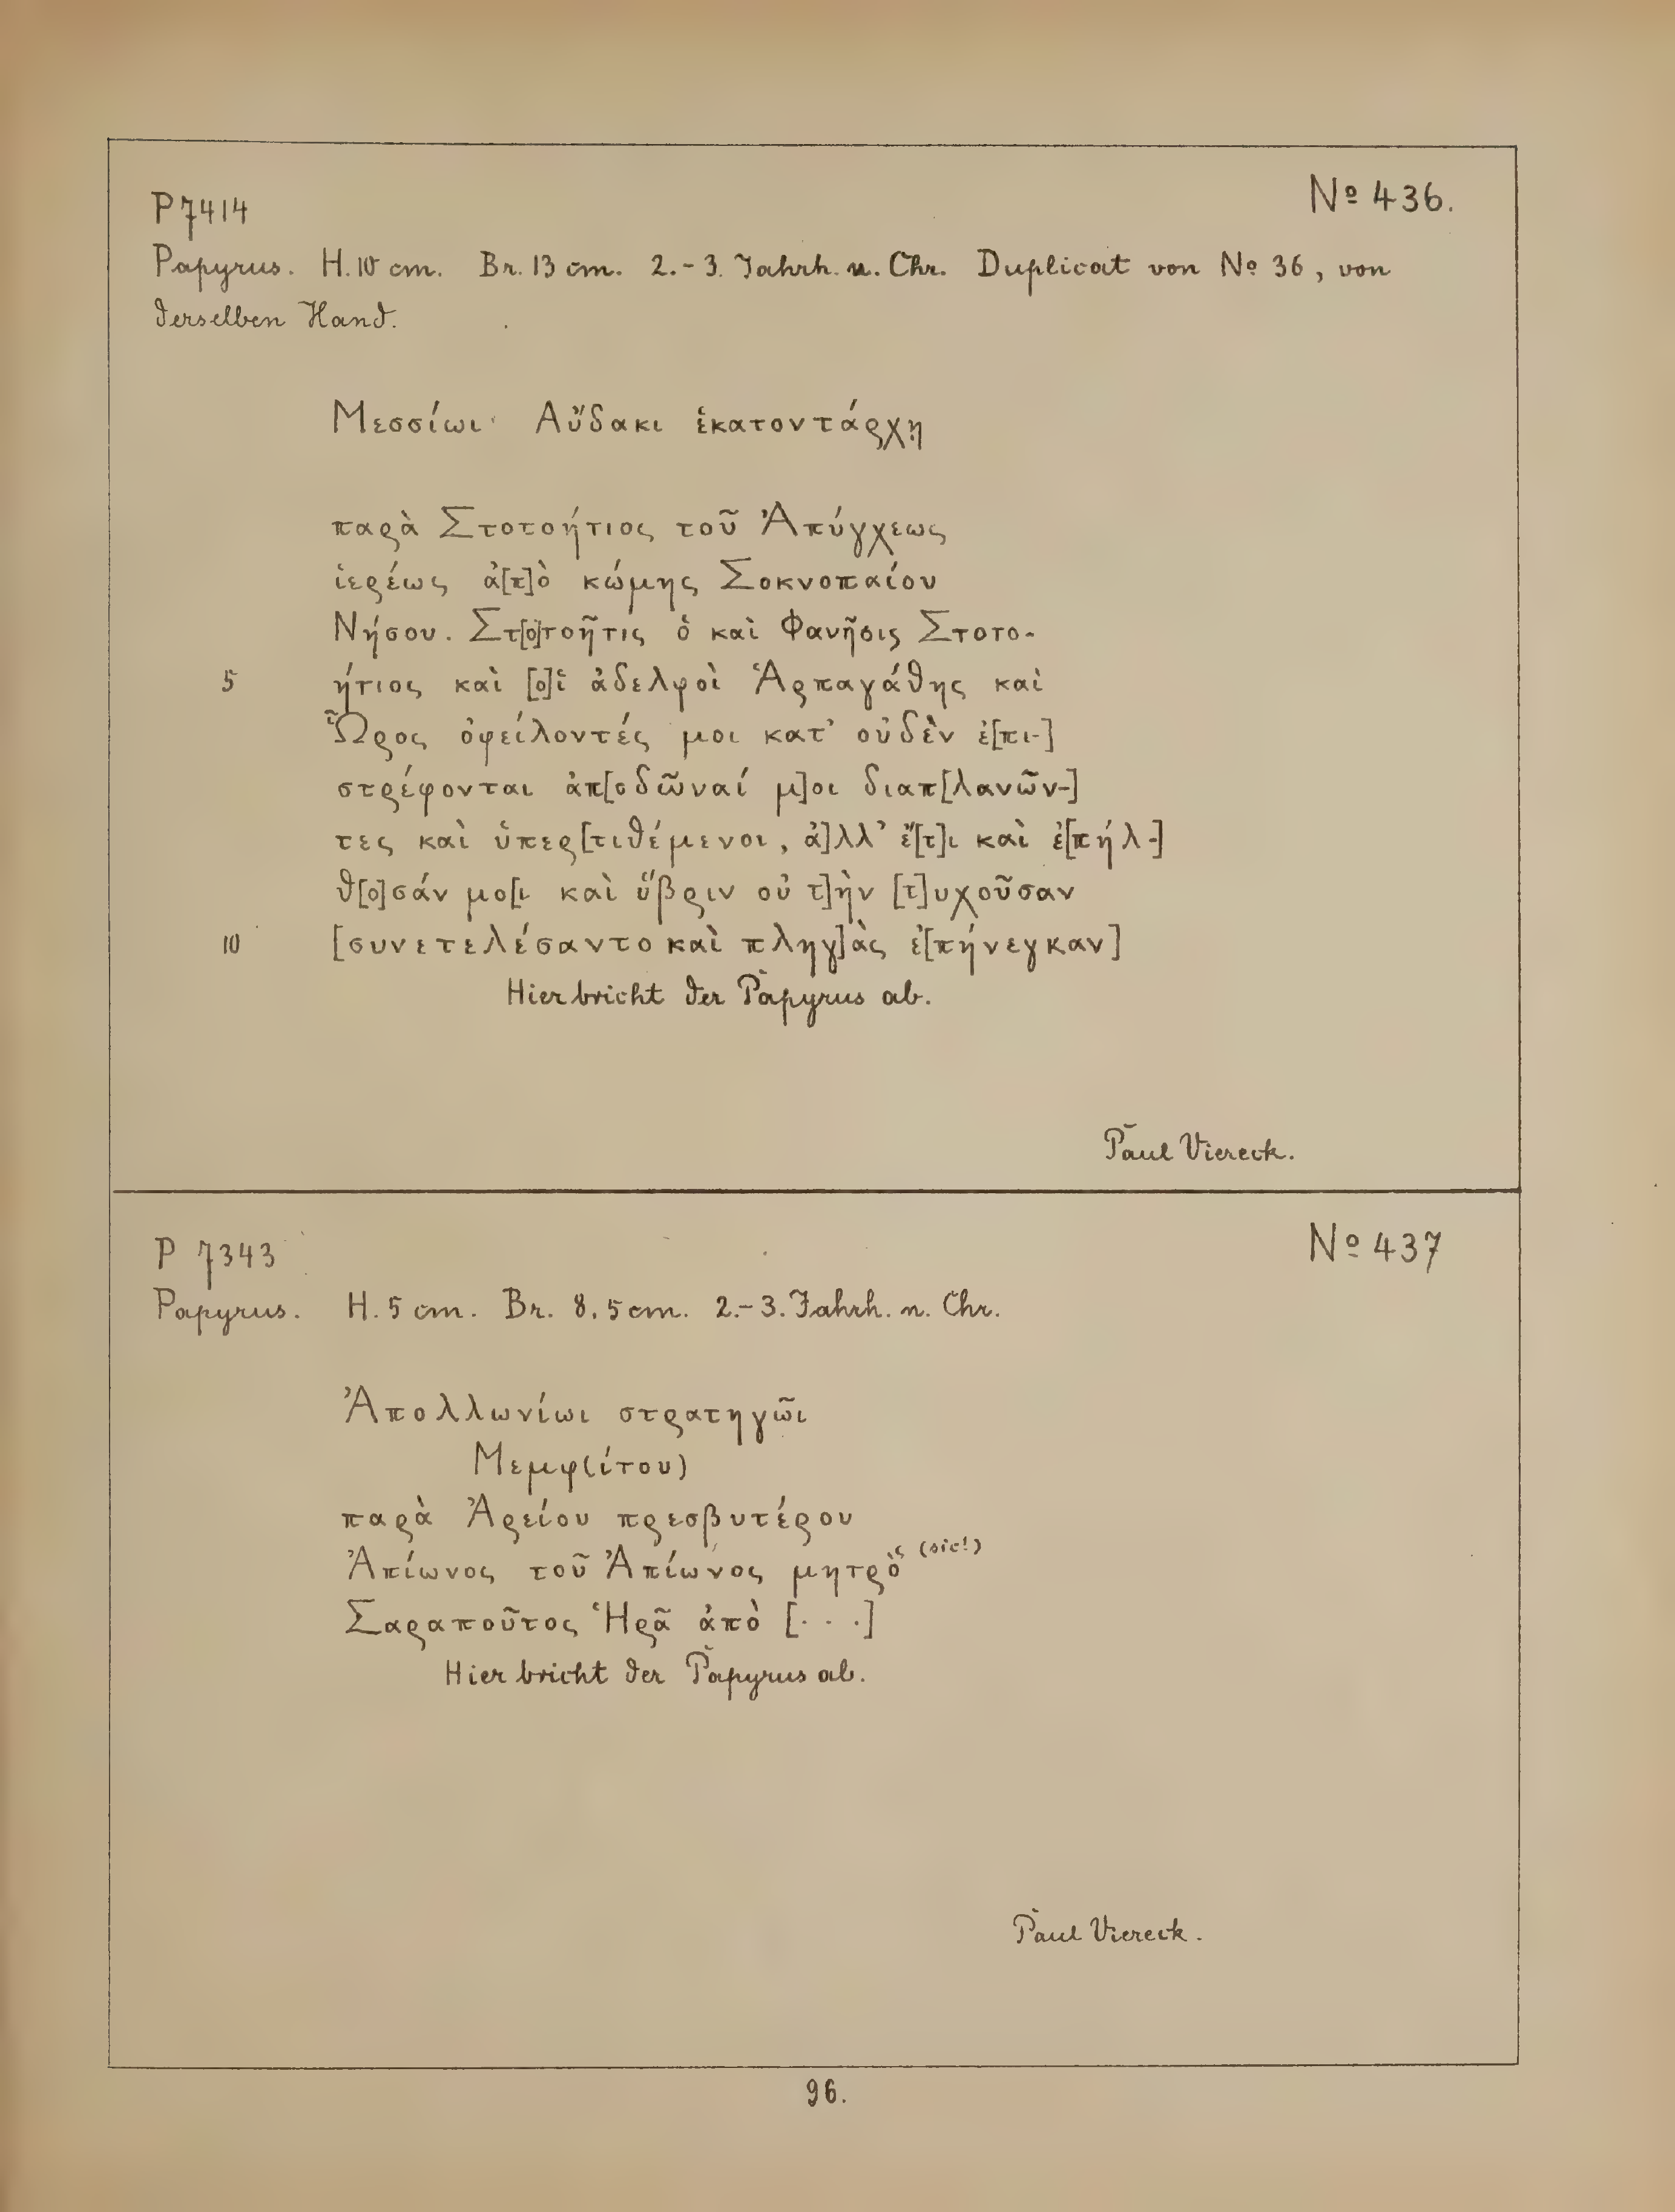 P 7414
Nº 436.
Papyrus. H. 10 cm. Br. 13 cm. 2.-3. Jahrh. n. Chr. Duplicat von Nº 36, von
derselben Hand.
Μεσσίωι Αὔδακι ἑκατοντάρχῃ
παρὰ Στοτοήτιος τοῦ Ἀπύγχεως
ἱερέως ἀ[π]ὸ κώμης Σοκνοπαίου
Νήσου. Στ[ο]τοῆτις ὁ καὶ Φανῆσις Στοτο-
5 ήτιος καὶ [ο]ἱ ἀδελφοὶ Ἁρπαγάθης καὶ
Ὧρος ὀφείλοντές μοι κατ’ οὐδὲν ἐ[πι-]
στρέφονται ἀπ[οδῶναί μ]οι διαπ[λανῶν-]
τες καὶ ὑπερ[τιθέμενοι, ἀ]λλ’ ἔ[τ]ι καὶ ἐ[πήλ-]
θ[ο]σάν μο[ι καὶ ὕβριν οὐ τ]ὴν [τ]υχοῦσαν
10 [συνετελέσαντο καὶ πληγ]ὰς ἐ[πήνεγκαν]
Hier bricht der Papyrus ab.
Paul Viereck.
P 7343
Nº 437
Papyrus. H. 5 cm. Br. 8,5 cm. 2.-3. Jahrh. n. Chr.
Ἀπολλωνίωι στρατηγῶι
Μεμφ(ίτου)
παρὰ Ἀρείου πρεσβυτέρου
Ἀπίωνος τοῦ Ἀπίωνος μητρὸς (sic!)
Σαραποῦτος Ἡρᾶ ἀπὸ [. . .]
Hier bricht der Papyrus ab.
Paul Viereck.
96.